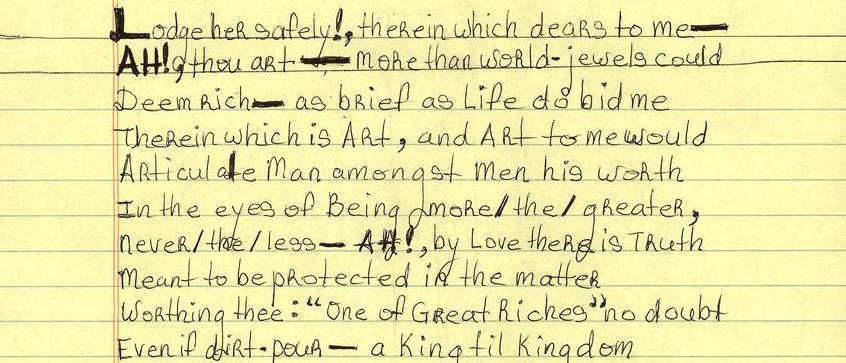 Lodge her safely!, therein which dears to me—
AH! thou art — more than world-jewels could
Deem rich— as brief as Life do bid me
Therein which is Art, and Art to me would
Articulate Man amongst men his worth
In the eyes of Being more/the/greater,
never/the/less— AH!, by Love there is Truth
Meant to be protected in the matter
Worthing thee: "One of Great Riches" no doubt
Even if dirt-pour— a King til Kingdom